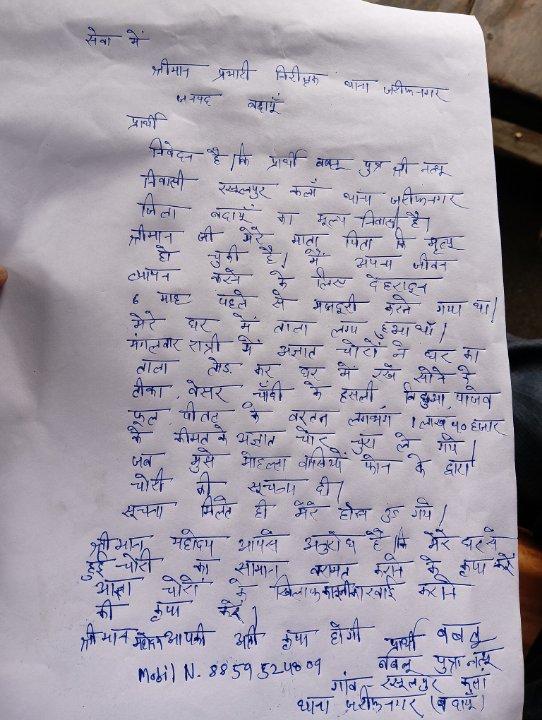 सेवा में
श्रीमान प्रभारी निरीक्षक थाना जरीफनगर
जनपद बदायूं
प्रार्थी
निवेदन है कि प्रार्थी बबलू पुत्र श्री नत्थू
निवासी रसूलपुर कलाँ थाना जरीफनगर
जिला बदायूं का मूल्य निवासी है।
श्रीमान जी मेरे माता पिता कि मृत्यु
हो चुकी है। मैं अपना जीवन
व्यापन करने के लिए देहरादून
6 माह पहले से मजदूरी करने गया था।
मेरे घर में ताला लगा हुआ था।
मंगलवार रात्री में अज्ञात चोरों ने घर का
ताला तोड़ कर घर में रखे सोने के
टीका, बेसर चाँदी के हसली बिछुआ, पाजेव
फूल पीतल के बरतन लगभग 1 लाख 50 हजार
के कीमत के अज्ञात चोर चुरा ले गये।
जब मुझे मोहल्ला वासियों फोन के द्वारा
चोरी की सूचना दी।
सूचना मिलते ही मेरे होश उड़ गये।
श्रीमान महोदय आपसे अनुरोध है कि मेरे घर से
हुई चोरी का सामान बरामद कराने के कृपा करें
अज्ञात चोरों के खिलाफ कानूनी कारवाई कराने
की कृपा करें।
श्रीमान महोदय आपकी अति कृपा होगी प्रार्थी बबलू
Mobil N. 8859524009 बबलू पुत्र नत्थू
गांव रसूलपुर कलां
थाना जरीफनगर (बदायूं)